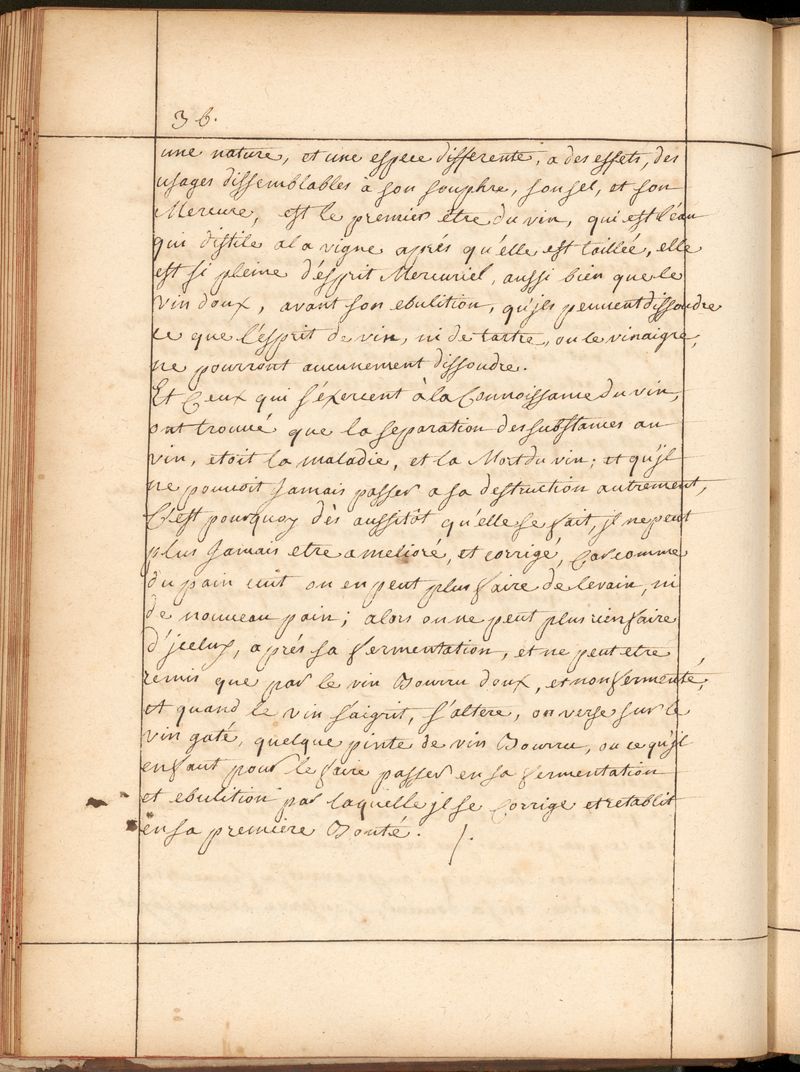 36.
une nature, et une espece differente, a des effets, des
usages dissemblables à son souphre, son sel, et son
Mercure, est le premier être du vin, qui est l'eau
qui distile a la vigne aprés qu'elle est taillée, elle
est si pleine d'ésprit Mercuriel, aussi bien que le
vin doux, avant son ebulition, qu'jls peuvent dissoudre
ce que l'ésprit de vin, ni de tartre, ou le vinaigre,
ne pourront aucunement dissoudre.
Et Ceux qui s'éxercent à la Connoissance du vin,
ont trouvé que la separation des substances au
vin, etoit la maladie, et la Mort du vin; et qu'jl
ne pouvoit Jamais passer a sa destruction autrement,
C'est pourquoy dès aussitôt qu'elle se fait, jl ne peut
plus Jamais etre amelioré, et corrigé, Car comme
du pain cuit on en peut plus faire de levain, ni
de nouveau pain; alors on ne peut plus rien faire
d'jceluy, aprés sa fermentation, et ne peut etre
remis que par le vin Bourru doux, et non fermenté,
et quand le vin s'aigrit, s'altere, on verse sur le
vin gaté, quelque pinte de vin Bourru, ou ce qu'jl
en faut pour le faire passer en sa fermentation
et ebulition par laquelle jl se Corrige et retablit
en sa premiere Bonté. /.